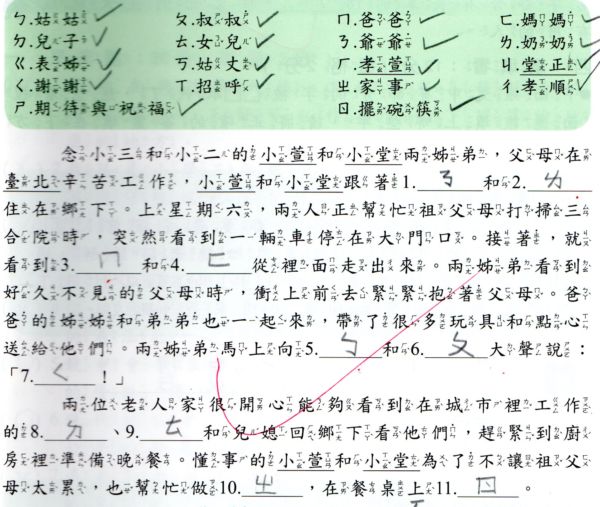 ㄅ.姑姑 ㄆ.叔叔 ㄇ.爸爸 ㄈ.媽媽
ㄉ.兒子 ㄊ.女兒 ㄋ.爺爺 ㄌ.奶奶
ㄍ.表姊 ㄎ.姑丈 ㄏ.孝萱 ㄐ.堂正
ㄑ.謝謝 ㄒ.招呼 ㄓ.家事 ㄔ.孝順
ㄕ.期待與祝福 ㄖ.擺碗筷
念小三和小二的小萱和小堂兩姊弟,父母在
臺北辛苦工作,小萱和小堂跟著1. ㄋ 和2. ㄌ
住在鄉下。上星期六,兩人正幫忙祖父母打掃三
合院時,突然看到一輛車停在大門口。接著,就
看到3. ㄇ 和4. ㄈ 從裡面走出來。兩姊弟看到
好久不見的父母時,衝上前去緊緊抱著父母。爸
爸的姊姊和弟弟也一起來,帶了很多玩具和點心
送給他們。兩姊弟馬上向5. ㄅ 和6. ㄆ 大聲說:
「7. ㄑ !」
兩位老人家很開心能夠看到在城市裡工作
的8. ㄉ 、9. ㄊ 和兒媳回鄉下看他們,趕緊到廚
房裡準備晚餐。懂事的小萱和小堂為了不讓祖父
母太累,也幫忙做10. ㄓ ,在餐桌上11. ㄖ 。